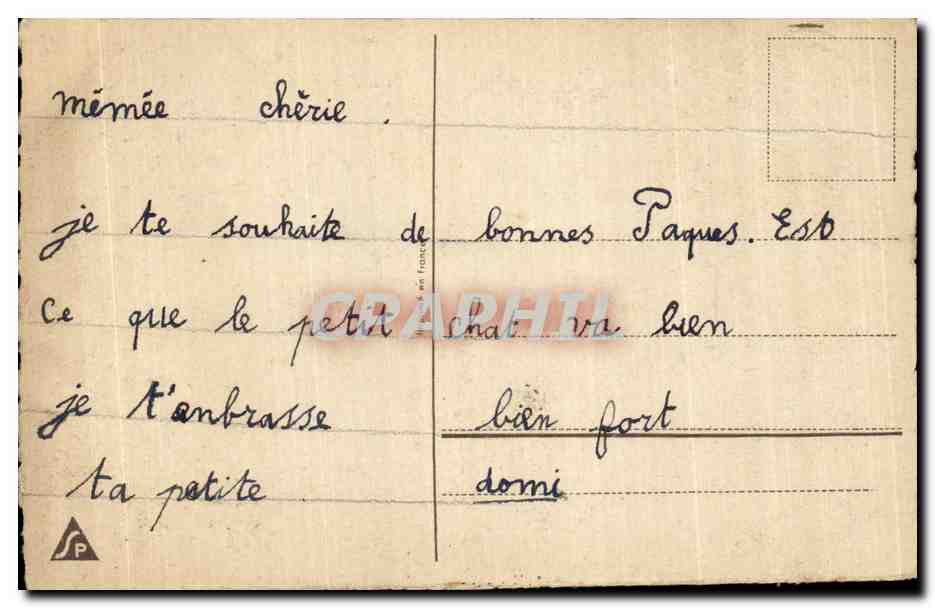 mémée chérie.
je te souhaite de bonnes Paques. Est
ce que le petit chat va bien
je t'enbrasse bien fort
ta petite domi
en France
CARAPHIL
SP